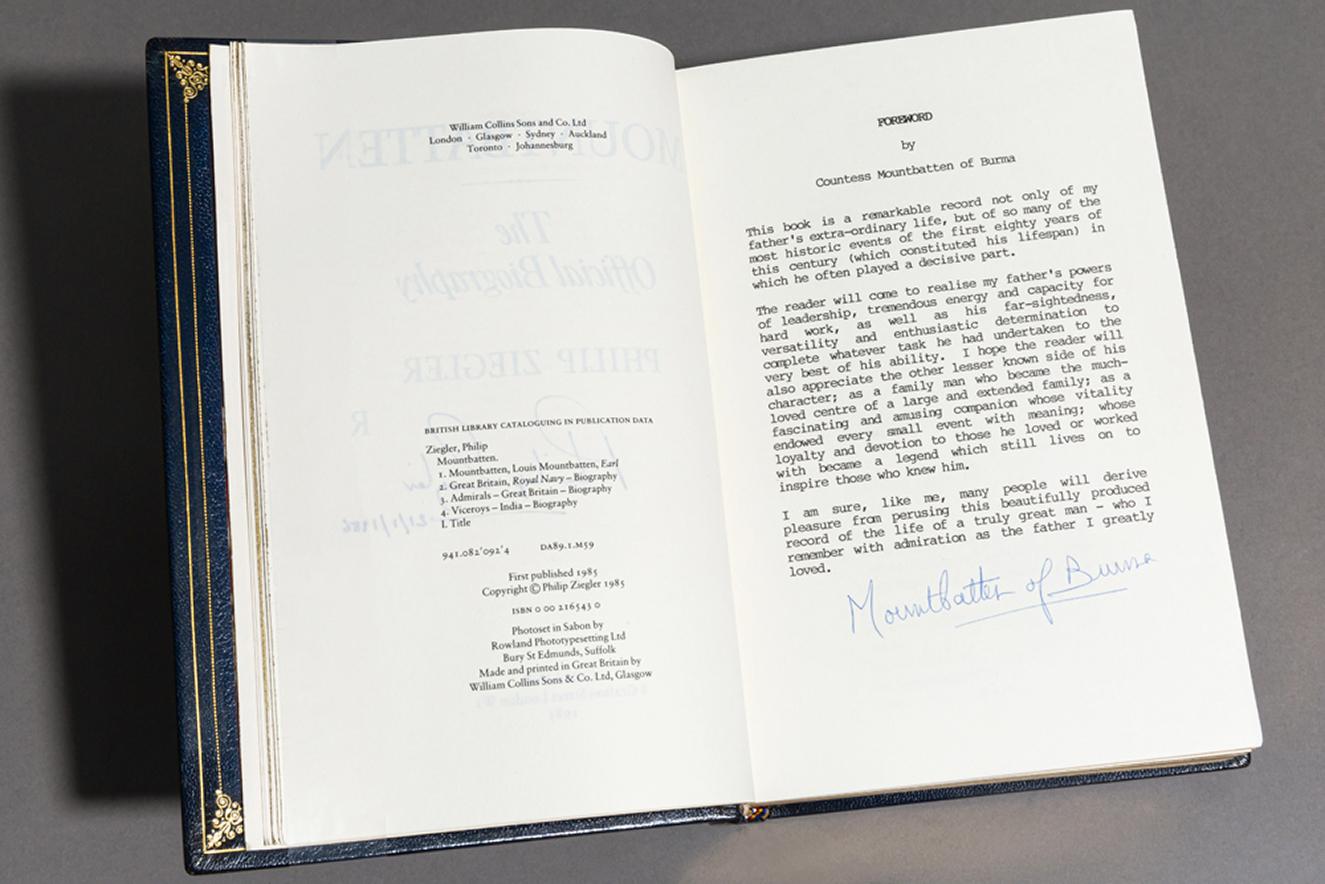 William Collins Sons and Co. Ltd
London · Glasgow · Sydney · Auckland
Toronto · Johannesburg
MOUNTBATTEN
The
Official Biography
PHILIP ZIEGLER
BRITISH LIBRARY CATALOGUING IN PUBLICATION DATA
Ziegler, Philip
Mountbatten.
1. Mountbatten, Louis Mountbatten, Earl
2. Great Britain, Royal Navy – Biography
3. Admirals – Great Britain – Biography
4. Viceroys – India – Biography
I. Title
941.082'092'4 DA89.1.M59
First published 1985
Copyright © Philip Ziegler 1985
ISBN 0 00 216543 0
Photoset in Sabon by
Rowland Phototypesetting Ltd
Bury St Edmunds, Suffolk
Made and printed in Great Britain by
William Collins Sons & Co. Ltd, Glasgow
FOREWORD
by
Countess Mountbatten of Burma
This book is a remarkable record not only of my
father's extra-ordinary life, but of so many of the
most historic events of the first eighty years of
this century (which constituted his lifespan) in
which he often played a decisive part.
The reader will come to realise my father's powers
of leadership, tremendous energy and capacity for
hard work, as well as his far-sightedness,
versatility and enthusiastic determination to
complete whatever task he had undertaken to the
very best of his ability. I hope the reader will
also appreciate the other lesser known side of his
character; as a family man who became the much-
loved centre of a large and extended family; as a
fascinating and amusing companion whose vitality
endowed every small event with meaning; whose
loyalty and devotion to those he loved or worked
with became a legend which still lives on to
inspire those who knew him.
I am sure, like me, many people will derive
pleasure from perusing this beautifully produced
record of the life of a truly great man - who I
remember with admiration as the father I greatly
loved.
Mountbatten of Burma